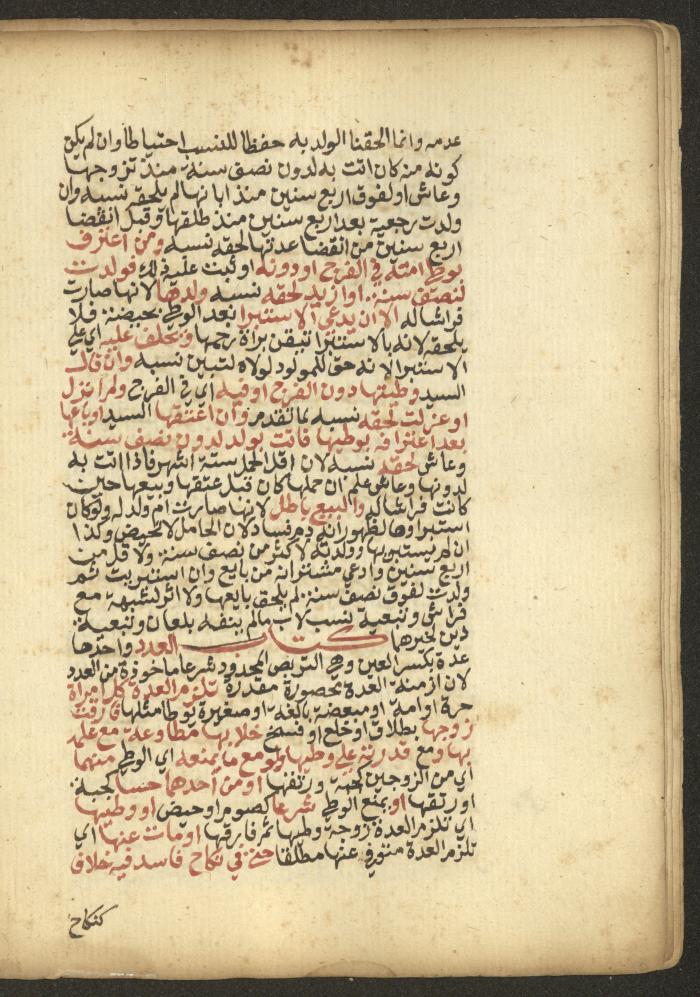 عدمه وانما الحقنا الولد به حفظا للنسب احتياطا وان لم يكن
كونه منه كان اتت به لدون نصف سنة منذ تزوجها
وعاش او لفوق اربع سنين منذ ابانها لم يلحقه نسبه وان
ولدت رجعية بعد اربع سنين منذ طلقها وقبل انقضا
اربع سنين من انقضا عدتها لحقه نسبه ومن اعترف
بوطي امته في الفرج او دونه او ثبت عليه ذلك فولدت
لنصف سنة او ازيد لحقه نسبه ولدها لانها صارت
فراشا له الا ان يدعي الاستبرا بعد الوطي بحيضة فلا
يلحقه لانه بالاستبرا تيقن براة رحمها ويحلف عليه اي على
الاستبرا لانه حق للمولود لولاه لتبين نسبه وان قال
السيد وطيتها دون الفرج او فيه اي في الفرج ولم انزل
او عزلت لحقه نسبه لما تقدم وان اعتقها السيد او باعها
بعد اعترافه بوطيها فاتت بولد لدون نصف سنة
وعاش لحقه نسبه لان اقل الحمل ستة اشهر فاذا اتت به
لدونها وعاش علم ان حملها كان قبل عتقها وبيعها حين
كانت فراشا له والبيع باطل لانها صارت ام ولد له ولو كان
استبراوها لظهور انه دم فساد لان الحامل لا تحيض وكذا
ان لم يستبريها وولدته لاكثر من نصف سنة ولاقل من
اربع سنين وادعى مشتر انه من بايع وان استبريت ثم
ولدت لفوق نصف سنة لم يلحق بايعها ولا اثر لشبهة مع
فراش وتبعية نسب لاب مالم ينفه بلعان وتبعية
دين لخيرهما كتاب العدد واحدها
عدة بكسر العين وهي التربص المحدود شرعا ماخوذة من العدد
لان ازمنة العدة محصورة مقدرة تلزم العدة كل امراة
حرة او امة او مبعضة بالغة او صغيرة يوطا مثلها فارقت
زوجها بطلاق او خلع او فسخ خلا بها مطاوعة مع علمه
بها ومع قدرته على وطيها ولو مع ما يمنعه اي الوطي منهما
اي من الزوجين كجبه ورتقها او من احدهما حسا كجبه
او رتقها او يمنع الوطي شرعا كصوم او حيض او وطيها
اي تلزم العدة زوجة وطيها ثم فارقها او مات عنها اي
تلزم العدة متوفى عنها مطلقا حتى في نكاح فاسد فيه خلاف
كنكاح